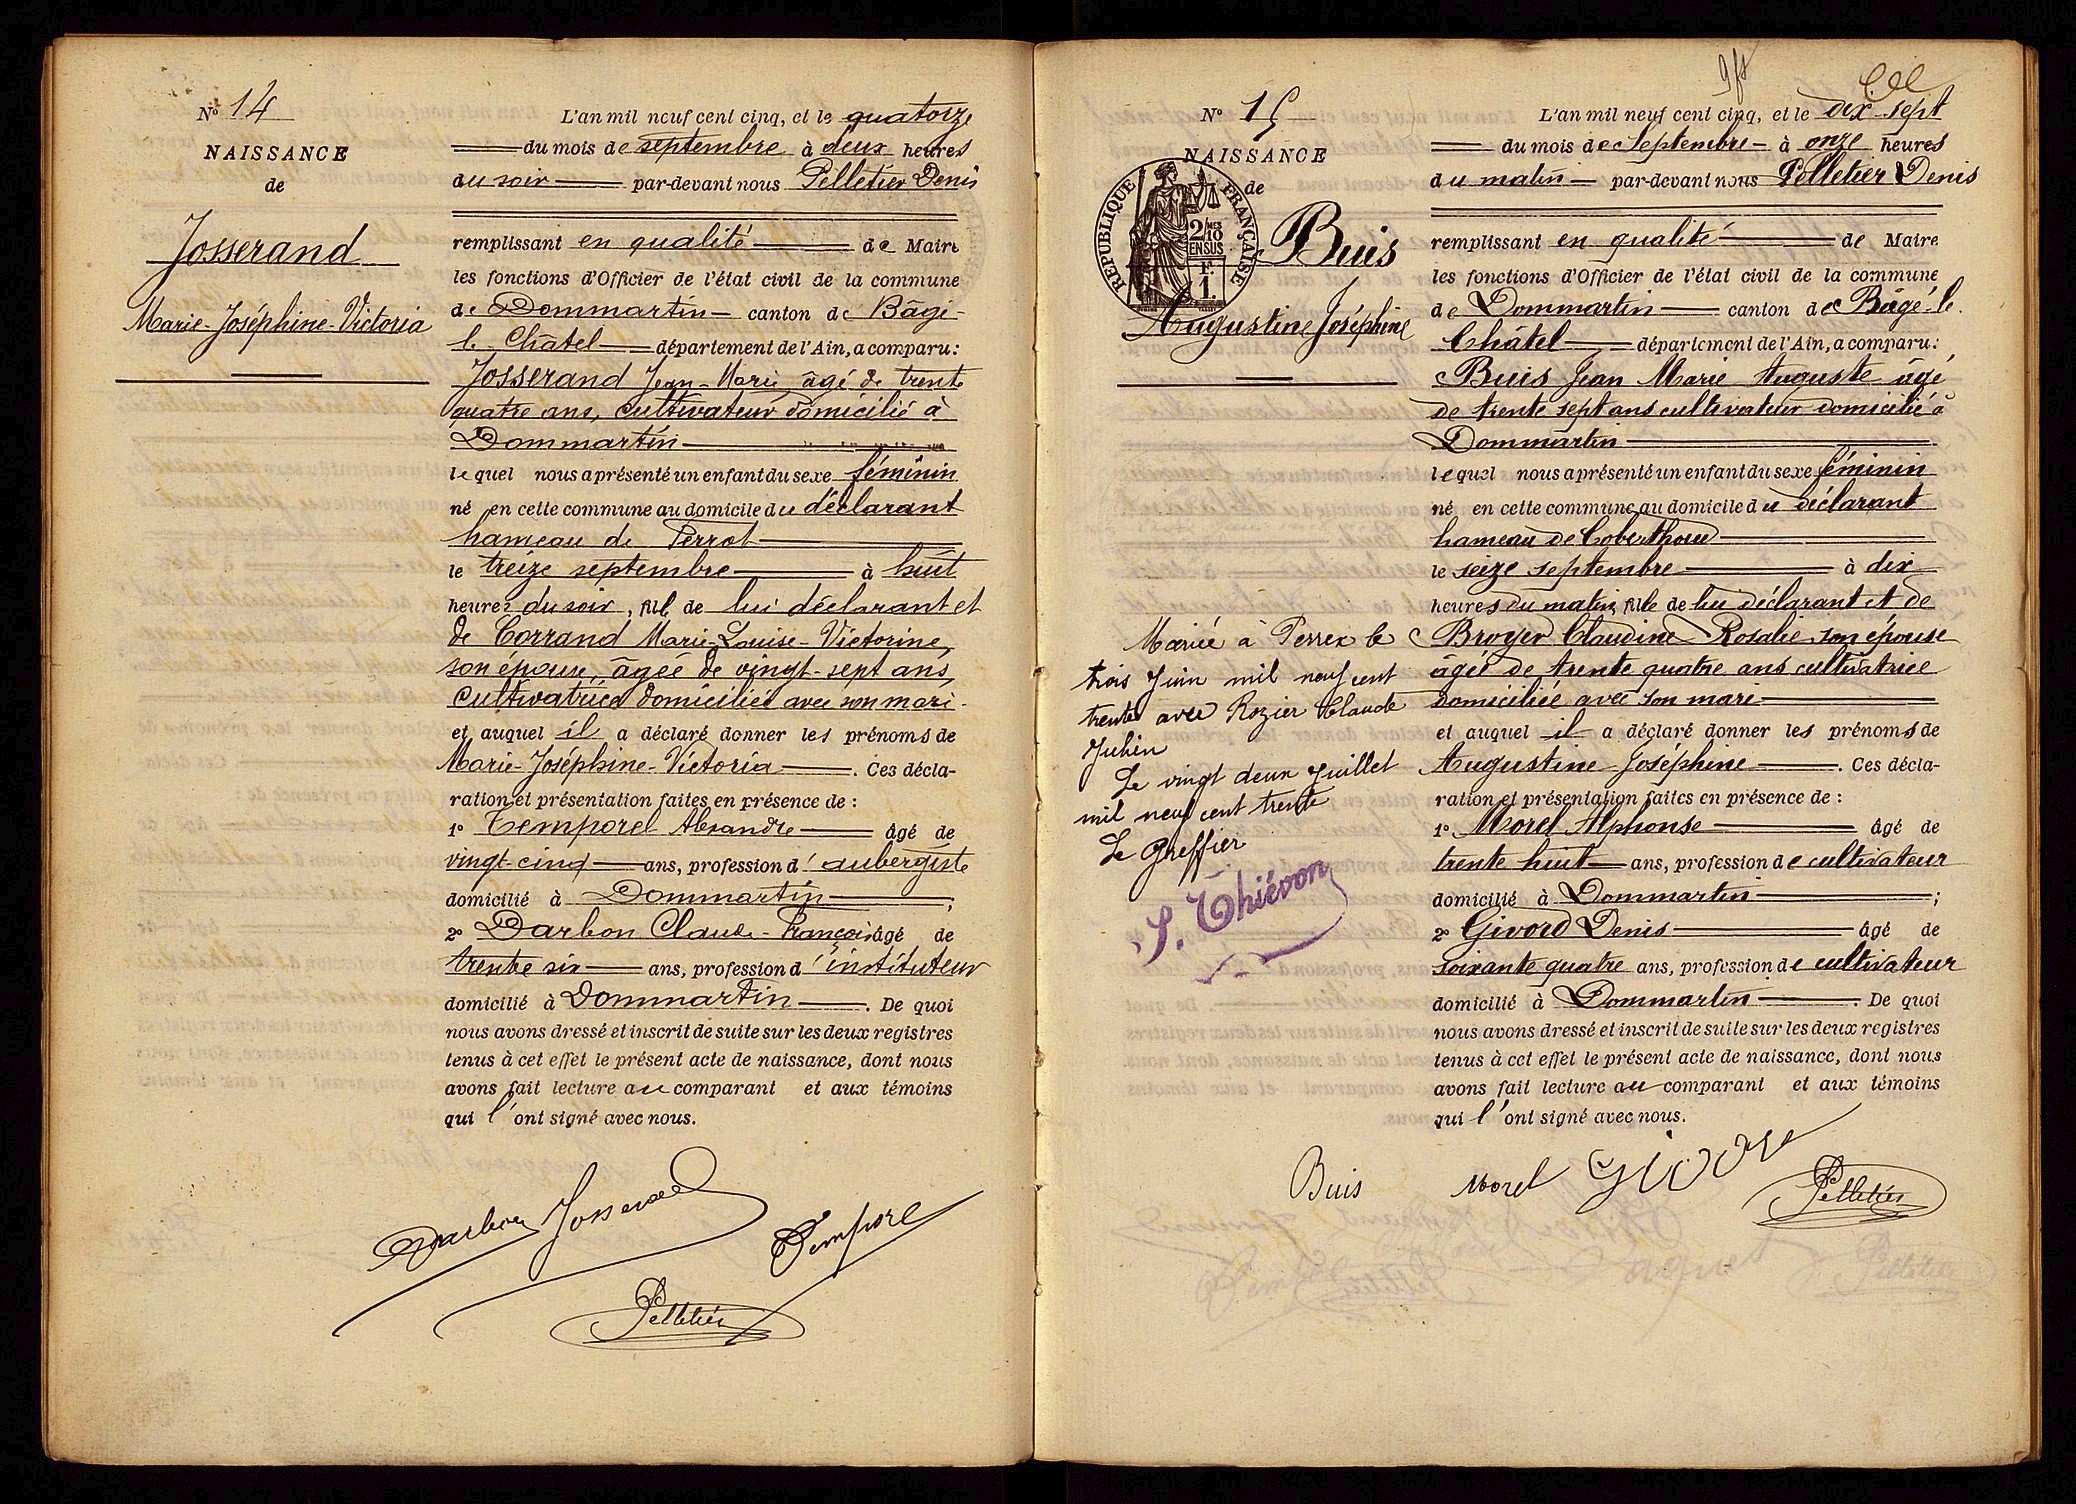 N° 14
NAISSANCE
de
Josserand
Marie-Joséphine-Victoria
L'an mil neuf cent cinq, et le quatorze
du mois de septembre à deux heures
du soir par-devant nous Pelletier Denis
remplissant en qualité de Maire
les fonctions d'Officier de l'état civil de la commune
de Dommartin canton de Bâgé-
le Châtel département de l'Ain, a comparu :
Josserand Jean-Marie âgé de trente
quatre ans, cultivateur domicilié à
Dommartin
lequel nous a présenté un enfant du sexe féminin
né en cette commune au domicile du déclarant
hameau de Perrot
le treize septembre à huit
heures du soir, fille de lui déclarant et
de Corrand Marie-Louise-Victorine,
son épouse, âgée de vingt-sept ans,
cultivatrice domiciliée avec son mari
et auquel il a déclaré donner les prénoms de
Marie-Joséphine-Victoria. Ces décla-
ration et présentation faites en présence de :
1° Temporel Alexandre âgé de
vingt-cinq ans, profession d'aubergiste
domicilié à Dommartin ;
2° Darbon Claude-François âgé de
trente six ans, profession d'instituteur
domicilié à Dommartin. De quoi
nous avons dressé et inscrit de suite sur les deux registres
tenus à cet effet le présent acte de naissance, dont nous
avons fait lecture au comparant et aux témoins
qui l'ont signé avec nous.
Darbon Josserand Temporel
Pelletier
N° 15
NAISSANCE
de
RÉPUBLIQUE FRANÇAISE
2/10 MES
EN SUS
1.
Buis
Augustine Joséphine
Mariée à Perrex le
trois Juin mil neuf cent
trente avec Rozier Claude
Juhin
Le vingt deux Juillet
mil neuf cent trente
Le Greffier
S. Thiévon
L'an mil neuf cent cinq, et le dix sept
du mois de Septembre à onze heures
du matin par-devant nous Pelletier Denis
remplissant en qualité de Maire
les fonctions d'Officier de l'état civil de la commune
de Dommartin canton de Bâgé-le
Châtel département de l'Ain, a comparu :
Buis Jean Marie Auguste âgé
de trente sept ans cultivateur domicilié à
Dommartin
lequel nous a présenté un enfant du sexe féminin
né en cette commune au domicile du déclarant
hameau de Coberthoud
le seize septembre à dix
heures du matin, fille de lui déclarant et de
Broyer Claudine Rosalie son épouse
âgée de trente quatre ans cultivatrice
domiciliée avec son mari
et auquel il a déclaré donner les prénoms de
Augustine Joséphine. Ces décla-
ration et présentation faites en présence de :
1° Morel Alphonse âgé de
trente huit ans, profession de cultivateur
domicilié à Dommartin ;
2° Givord Denis âgé de
soixante quatre ans, profession de cultivateur
domicilié à Dommartin. De quoi
nous avons dressé et inscrit de suite sur les deux registres
tenus à cet effet le présent acte de naissance, dont nous
avons fait lecture au comparant et aux témoins
qui l'ont signé avec nous.
Buis Morel Givord
Pelletier